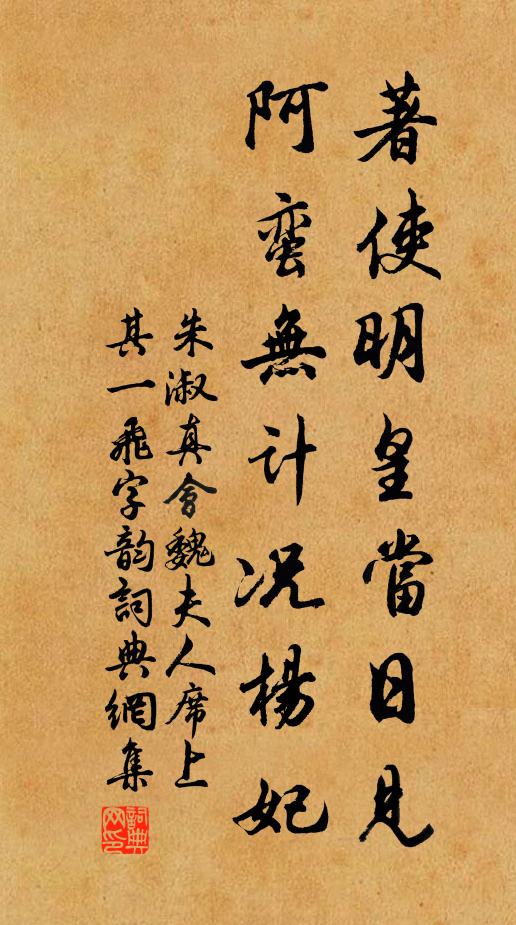 著使明皇當日見
阿蛮無計况楊妃
朱淑真會魏夫人席上
其一飛字韵詞典網集
詞典網印